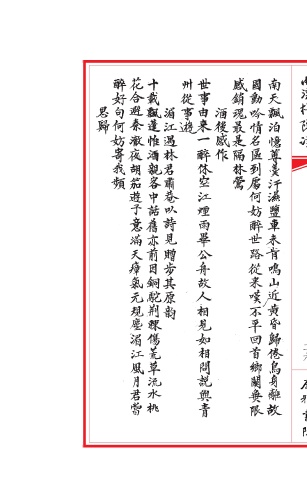 南天飄泊憶蓴羹汗濕鹽車未肯鳴山近黃昏歸倦鳥身離故
國動吟情名區到屬何妨醉世路從來嘆不平回首鄉關無限
感銷魂最是隔林鶯
酒後感作
世事由來一醉休空江煙雨舉公舟故人相見如相問說與青
州從事遊
湄江遇林君肅巷以詩見贈步其原韵
十載飄蓬惟酒親客中話舊亦前因銅駝荊棘傷荒草流水桃
花合避秦澈夜胡笳遊子意滿天瘴氣元規塵湄江風月君當
醉好句何妨寄我頻
思歸